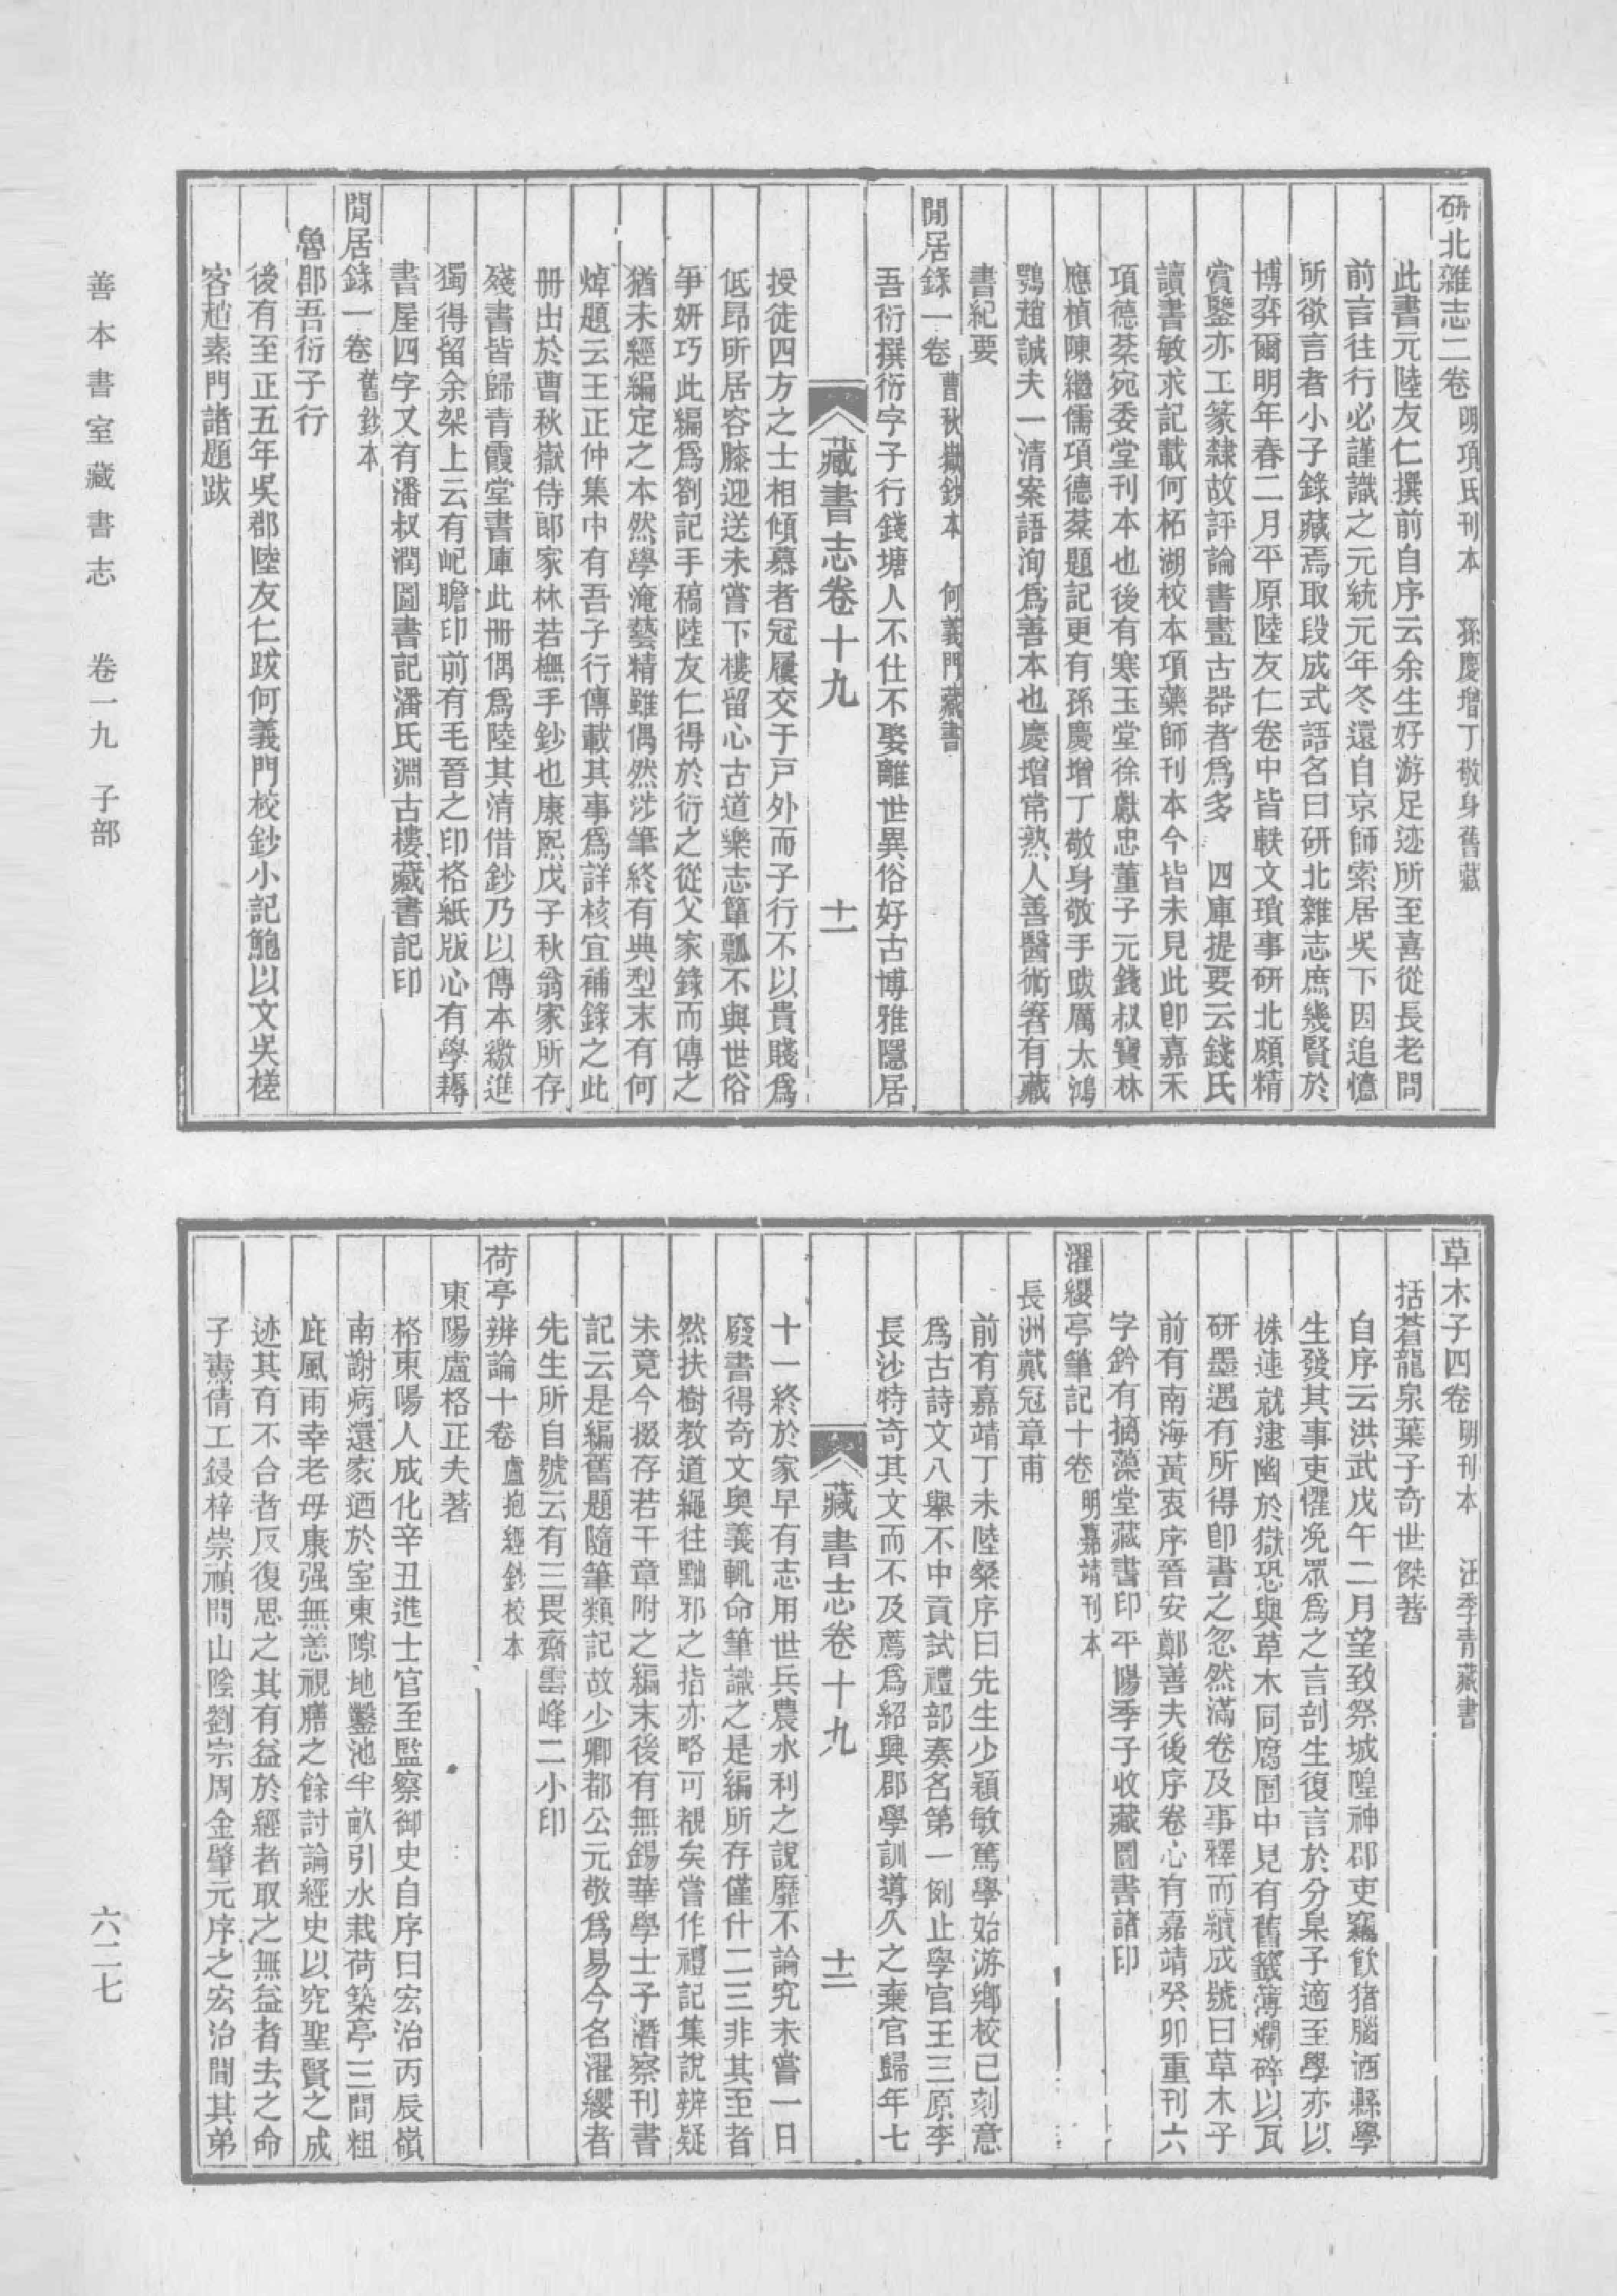 研北雜志二卷 明項氏刊本 孫慶增丁敬身舊藏
此書元陸友仁撰前自序云余生好游足迹所至喜從長老問
前言往行必謹識之元統元年冬還自京師索居吳下因追憶
所欲言者小子錄藏焉取段成式語名曰研北雜志庶幾賢於
博弈爾明年春二月平原陸友仁卷中皆軼文瑣事研北頗精
賞鑒亦工篆隸故評論書畫古器者爲多 四庫提要云錢氏
讀書敏求記載何柘湖校本項藥師刊本今皆未見此卽嘉禾
項德棻宛委堂刊本也後有寒玉堂徐獻忠董子元錢叔寶林
應楨陳繼儒項德棻題記更有孫慶增丁敬身敬手跋厲太鴻
鶚趙誠夫一清案語洵爲善本也慶增常熟人善醫術箸有藏
書紀要
閒居錄一卷 曹秋嶽鈔本 何義門藏書
吾衍撰衍字子行錢塘人不仕不娶離世異俗好古博雅隱居
藏書志卷十九 十一
授徒四方之士相傾慕者冠屨交于戶外而子行不以貴賤爲
低昂所居容膝迎送未嘗下樓留心古道樂志簞瓢不與世俗
爭姸巧此編爲劄記手稿陸友仁得於衍之從父家錄而傳之
猶未經編定之本然學淹藝精雖偶然涉筆終有典型末有何
焯題云王正仲集中有吾子行傳載其事爲詳核宜補錄之此
冊出於曹秋嶽侍郎家林若橅手鈔也康熙戊子秋翁家所存
殘書皆歸青霞堂書庫此冊偶爲陸其清借鈔乃以傳本繳進
獨得留余架上云有屺瞻印前有毛晉之印格紙版心有學耨
書屋四字又有潘叔潤圖書記潘氏淵古樓藏書記印
閒居錄一卷 舊鈔本
魯郡吾衍子行
後有至正五年吳郡陸友仁跋何義門校鈔小記鮑以文吳槎
客趙素門諸題跋
草木子四卷 明刊本 汪季青藏書
括蒼龍泉葉子奇世傑著
自序云洪武戊午二月望致祭城隍神郡吏竊飲猪腦酒縣學
生發其事吏懼免眾爲之言剖生復言於分臬子適至學亦以
株連就逮幽於獄恐與草木同腐圄中見有舊籖簿爛碎以瓦
研墨遇有所得卽書之忽然滿卷及事釋而續成號曰草木子
前有南海黃衷序晉安鄭善夫後序卷心有嘉靖癸卯重刊六
字鈐有摛藻堂藏書印平陽季子收藏圖書諸印
濯纓亭筆記十卷 明嘉靖刊本
長洲戴冠章甫
前有嘉靖丁未陸粲序曰先生少穎敏篤學始游鄉校已刻意
爲古詩文八舉不中貢試禮部奏名第一例止學官王三原李
長沙特奇其文而不及薦爲紹興郡學訓導久之棄官歸年七
藏書志卷十九 十二
十一終於家早有志用世兵農水利之說靡不論究未嘗一日
廢書得奇文奧義輒命筆識之是編所存僅什二三非其至者
然扶樹教道繩往黜邪之指亦略可覩矣嘗作禮記集說辨疑
未竟今掇存若干章附之編末後有無錫華學士子潛察刊書
記云是編舊題隨筆類記故少卿都公元敬爲易今名濯纓者
先生所自號云有三畏齋雲峰二小印
荷亭辨論十卷 盧抱經鈔校本
東陽盧格正夫著
格東陽人成化辛丑進士官至監察御史自序曰宏治丙辰嶺
南謝病還家迺於室東隙地鑿池半畝引水栽荷築亭三間粗
庇風雨幸老母康强無恙視膳之餘討論經史以究聖賢之成
迹其有不合者反復思之其有益於經者取之無益者去之命
子燾倩工鋟梓崇禎間山陰劉宗周金肇元序之宏治間其弟
善本書室藏書志 卷一九 子部
六二七